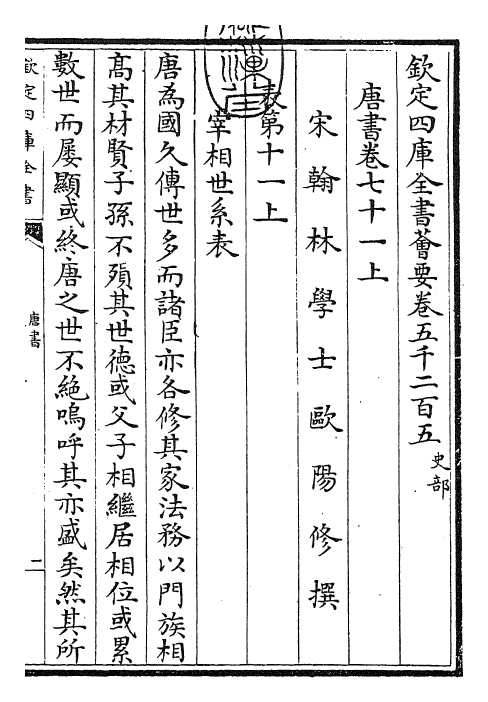 欽定四庫全書薈要卷五千二百五 史部
唐書卷七十一上
宋翰林學士歐陽修撰
表第十一上
宰相世系表
唐為國久傳世多而諸臣亦各修其家法務以門族相
高其材賢子孫不殞其世德或父子相繼居相位或累
數世而屢顯或終唐之世不絕嗚呼其亦盛矣然其所
欽定四庫全書
唐書
二